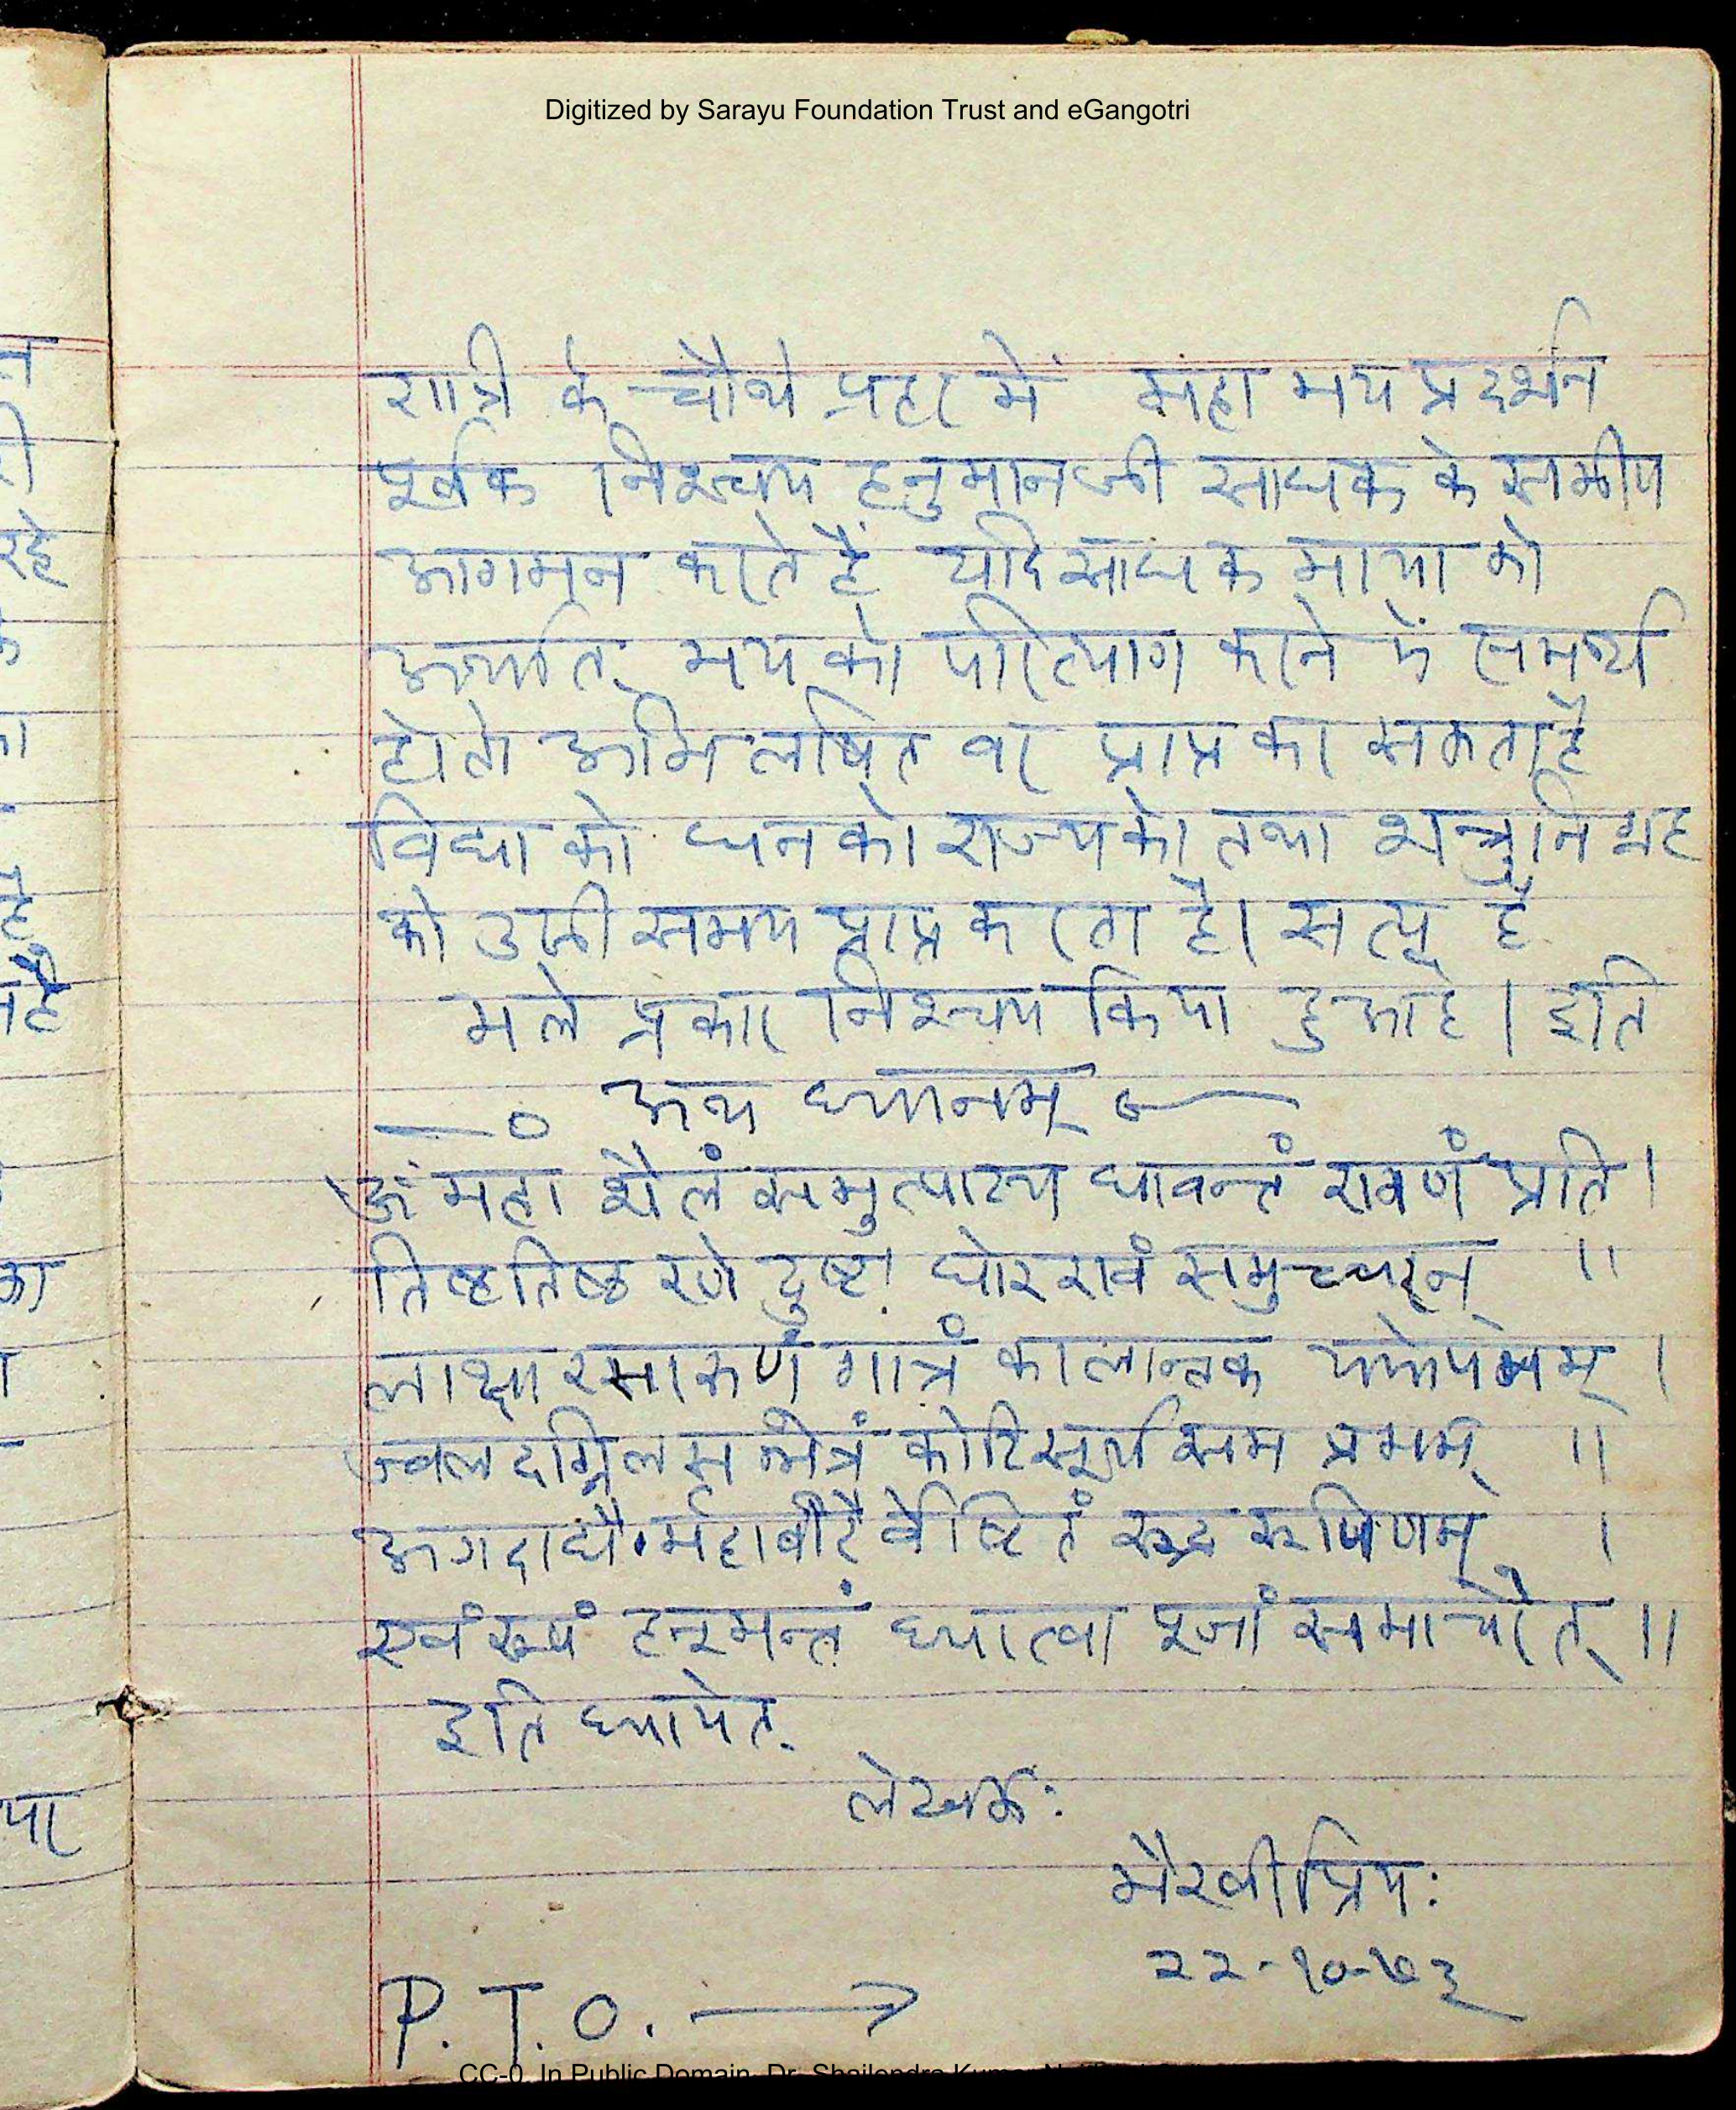 Digitized by Sarayu Foundation Trust and eGangotri
रात्रि के चौथे प्रहर में महा भय प्रदर्शन
पूर्वक निश्चय हनुमानजी साधक के समीप
आगमन करते हैं यदि साधक माया को
अर्थात् भय को परित्याग करने में समर्थ
हो तो अभिलषित वर प्राप्त कर सकता है
विद्या को धन को राज्य को तथा शत्रुनिग्रह
को उसी समय प्राप्त करता है। सत्य है
भले प्रकार निश्चय किया हुआ है। इति
—० अथ ध्यानम् ०—
ॐ महा शैलं समुत्पाट्य धावन्तं रावणं प्रति।
तिष्ठ तिष्ठ रणे दुष्ट! घोर रावं समुच्चरन् ॥
लाक्षा रसारुणं गात्रं कालान्तक यमोपमम् ।
ज्वलदग्निलसन्नेत्रं कोटि सूर्य सम प्रभम् ॥
अगदाद्यै र्महावीरै र्वेष्टितं रुद्र रूपिणम् ।
एवं रूपं हनूमन्तं ध्यात्वा पूजां समाचरेत् ॥
इति ध्यायेत्
लेखकः
भैरवीप्रियः
२२-१०-७३
P. T. O. →
CC-0. In Public Domain. Dr. Shailendra Kumar
न
ी
रहे
है
है
या